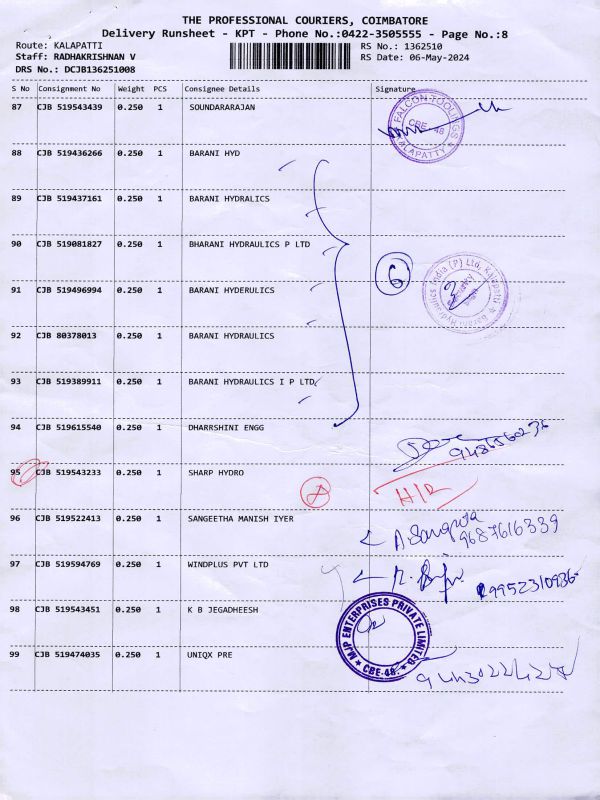 THE PROFESSIONAL COURIERS, COIMBATORE
Delivery Runsheet - KPT - Phone No.:0422-3505555 - Page No.:8
Route: KALAPATTI RS No.: 1362510
Staff: RADHAKRISHNAN V RS Date: 06-May-2024
DRS No.: DCJB136251008
S No Consignment No Weight PCS Consignee Details Signature
87 CJB 519543439 0.250 1 SOUNDARARAJAN
FALCON TOOLINGS CBE-48 KALAPATTY
88 CJB 519436266 0.250 1 BARANI HYD
89 CJB 519437161 0.250 1 BARANI HYDRALICS
90 CJB 519081827 0.250 1 BHARANI HYDRAULICS P LTD
6
Barani Hydraulics India (P) Ltd, Kalapatti
91 CJB 519496994 0.250 1 BARANI HYDERULICS
92 CJB 80378013 0.250 1 BARANI HYDRAULICS
93 CJB 519389911 0.250 1 BARANI HYDRAULICS I P LTD
94 CJB 519615540 0.250 1 DHARRSHINI ENGG
95 CJB 519543233 0.250 1 SHARP HYDRO
H/R
96 CJB 519522413 0.250 1 SANGEETHA MANISH IYER
A. Sangeeta
9687616339
97 CJB 519594769 0.250 1 WINDPLUS PVT LTD
9952310936
98 CJB 519543451 0.250 1 K B JEGADHEESH
MJP ENTERPRISES PRIVATE LIMITED CBE-48.
99 CJB 519474035 0.250 1 UNIQX PRE